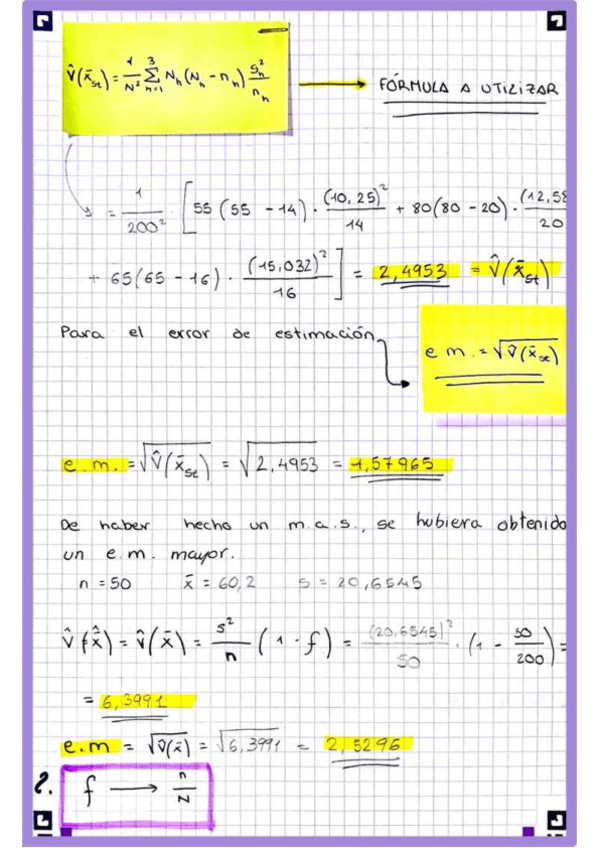 V̂(x̄st) = 1/N² Σ(h=1 to 3) Nh(Nh - nh) Sh²/nh → FÓRMULA A UTILIZAR
= 1/200² · [55(55 - 14) · (10,25)²/14 + 80(80 - 20) · (12,58/20
+ 65(65 - 16) · (15,032)²/16] = 2,4953 = V̂(x̄st)
Para el error de estimación
e m. = √V̂(x̄st)
e.m. = √V̂(x̄st) = √2,4953 = 1,57965
De haber hecho un m.a.s., se hubiera obtenido
un e.m. mayor.
n = 50 x̄ = 60,2 s = 20,6545
V̂(x̄̂) = V̂(x̄) = s²/n (1 - f) = (20,6545)²/50 · (1 - 50/200) =
= 6,3991
e.m = √V̂(x̄) = √6,3991 = 2,5296
2. f → n/N